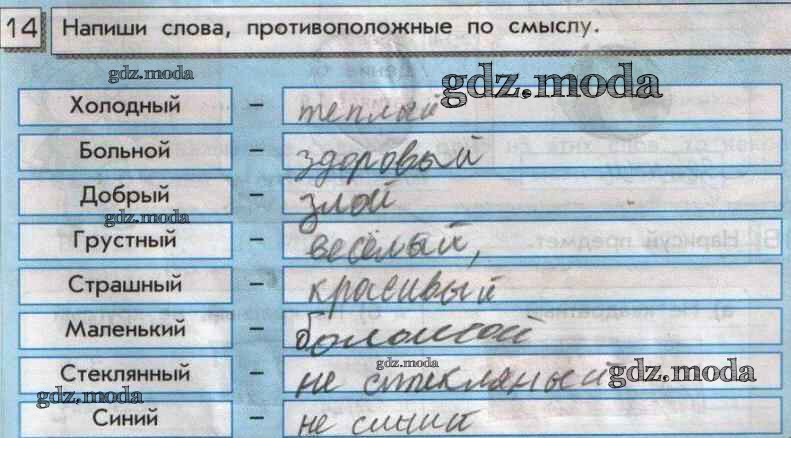 14 Напиши слова, противоположные по смыслу.
gdz.moda
gdz.moda
Холодный – теплый
Больной – здоровый
Добрый – злой
gdz.moda
Грустный – весёлый,
Страшный – красивый
Маленький – большой
gdz.moda
Стеклянный – не стекляный
gdz.moda
gdz.moda
Синий – не синий